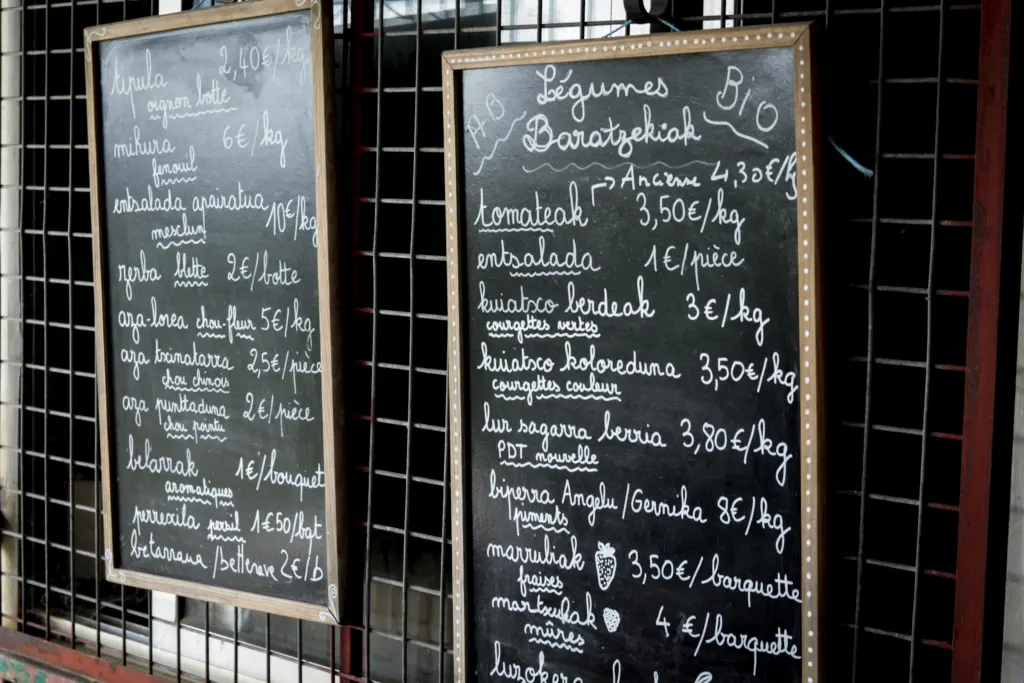 tipula 2,40€/kg
oignon botte
mihura 6€/kg
fenouil
entsalada apairatua 10€/kg
mesclun
zerba blette 2€/botte
aza-lorea chou-fleur 5€/kg
aza txinatarra 2,5€/pièce
chou chinois
aza punttaduna 2€/pièce
chou pointu
belarrak 1€/bouquet
aromatiques
perrexila persil 1€50/bat
betarraua/betterave 2€/b
AB Légumes BiO
Baratzekiak
→ Ancienne 4,30€/kg
tomateak 3,50€/kg
entsalada 1€/pièce
kuiatxo berdeak 3€/kg
courgettes vertes
kuiatxo koloreduna 3,50€/kg
courgettes couleur
lur sagarra berria 3,80€/kg
PDT nouvelle
biperra Angelu/Gernika 8€/kg
piments
marrubiak 3,50€/barquette
fraises
martxukak 4€/barquette
mûres